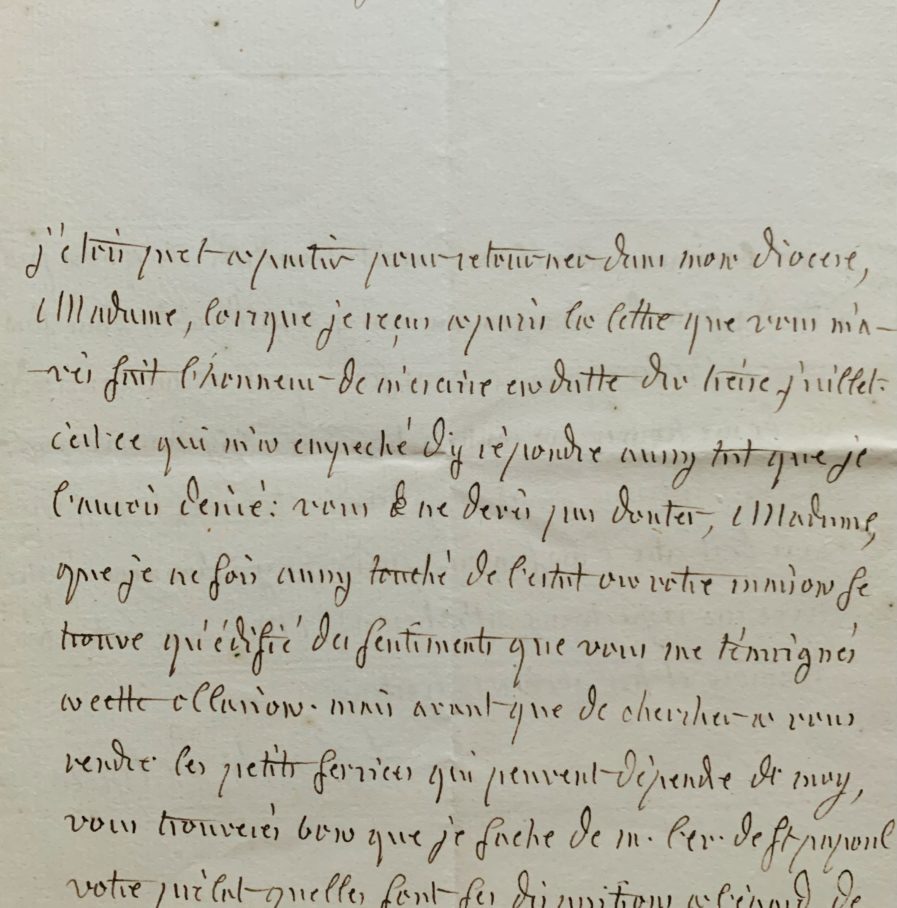 j'etois pret a partir pour retourner dans mon diocese,
Madame, lorsque je reçus a paris la lettre que vous m'a-
-vés fait l'honneur de m'ecrire en datte du treise juillet.
c'est ce qui m'a empeché d'y répondre aussy tot que je
l'aurois desiré: vous ne devés pas douter, Madame,
que je ne sois aussy touché de l'estat ou votre maison se
trouve qu'édifié des sentiments que vous me témoignés
a cette occasion. mais avant que de chercher a vous
rendre les petits services qui peuvent dépendre de moy,
vous trouverés bon que je sache de m. l'ev. de st papoul
votre prélat quelles sont ses dispositions a l'égard de